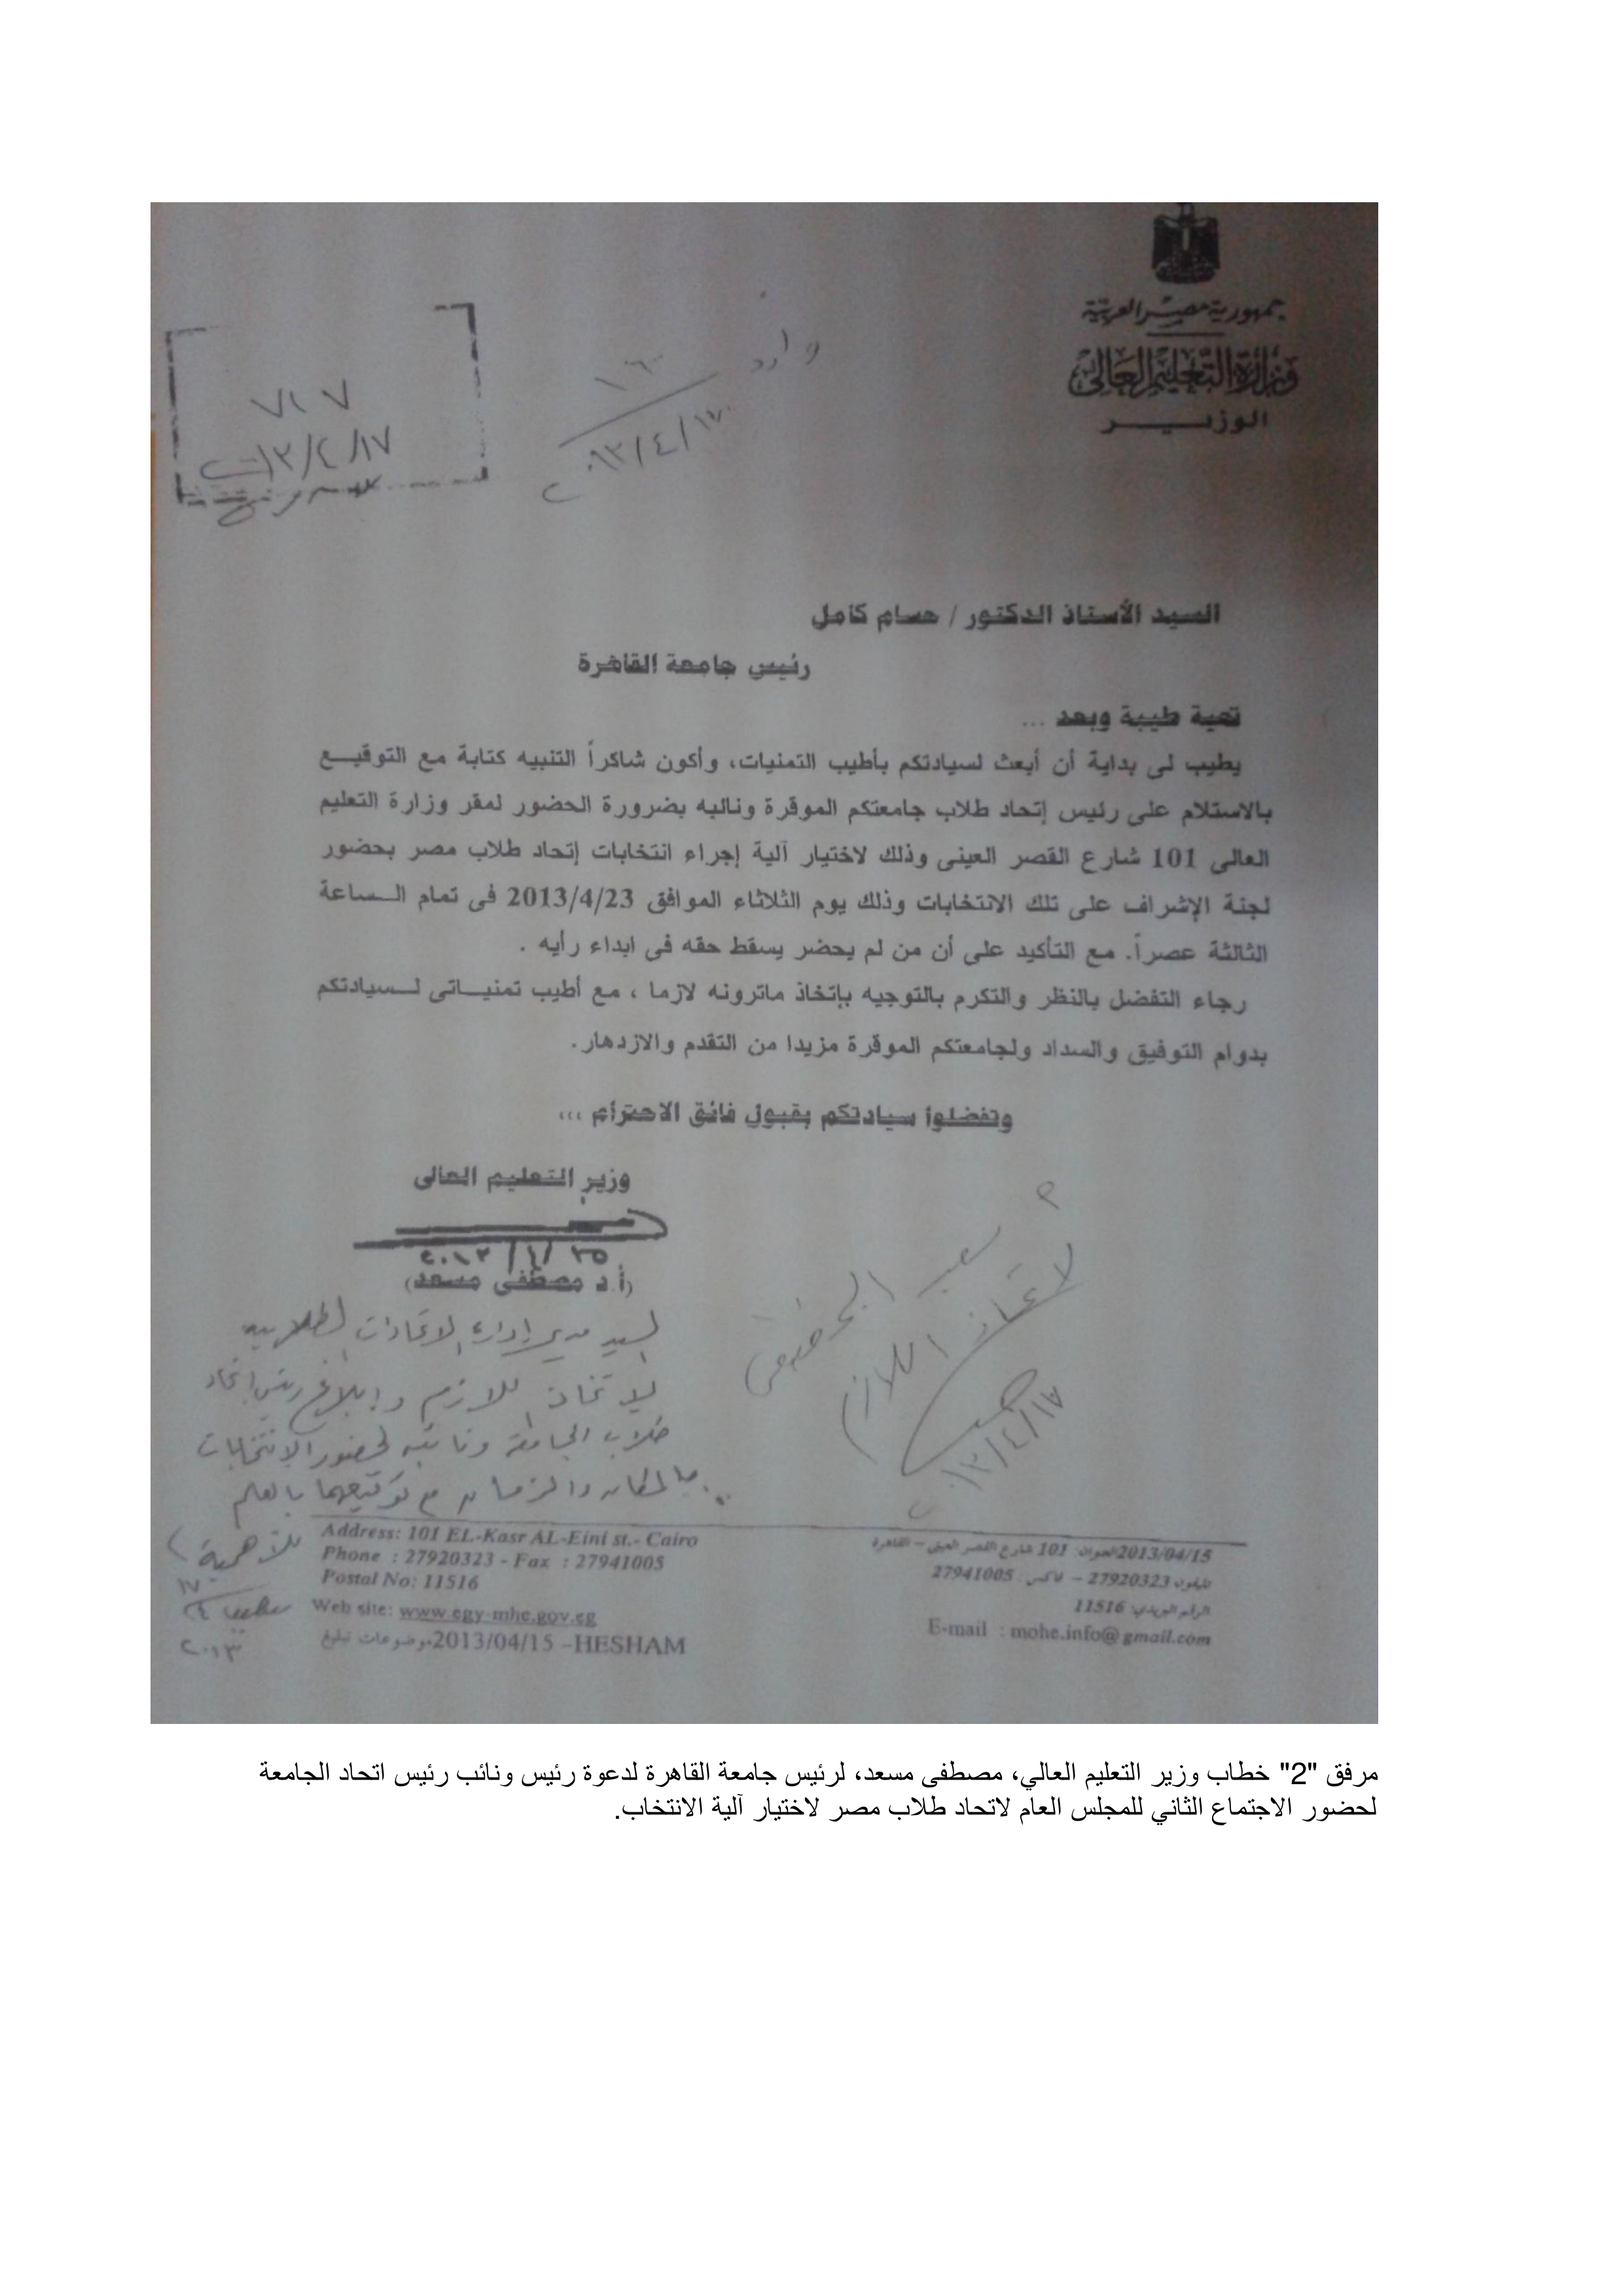 جمهورية مصر العربية
وزارة التعليم العالى
الوزيـــر
وارد
٢٠١٣/٤/١٧
السيد الأستاذ الدكتور / حسام كامل
رئيس جامعة القاهرة
تحية طيبة وبعد ...
يطيب لى بداية أن أبعث لسيادتكم بأطيب التمنيات، وأكون شاكراً التنبيه كتابة مع التوقيـــع
بالاستلام على رئيس إتحاد طلاب جامعتكم الموقرة ونائبه بضرورة الحضور لمقر وزارة التعليم
العالى 101 شارع القصر العينى وذلك لاختيار آلية إجراء انتخابات إتحاد طلاب مصر بحضور
لجنة الإشراف على تلك الانتخابات وذلك يوم الثلاثاء الموافق 2013/4/23 فى تمام الـساعة
الثالثة عصراً. مع التأكيد على أن من لم يحضر يسقط حقه فى ابداء رأيه .
رجاء التفضل بالنظر والتكرم بالتوجيه بإتخاذ ماترونه لازما ، مع أطيب تمنيـــاتى لـــسيادتكم
بدوام التوفيق والسداد ولجامعتكم الموقرة مزيدا من التقدم والازدهار.
وتفضلوا سيادتكم بقبول فائق الاحترام ...
وزير التعليم العالى
(أ.د مصطفى مسعد)
السيد مدير إدارة الاتحادات الطلابية
لاتخاذ اللازم وإبلاغ رئيس اتحاد
طلاب الجامعة ونائبه لحضور الانتخابات
بالمكان والزمان مع توقيعهما بالعلم
للأهمية
لاتخاذ اللازم
Address: 101 EL-Kasr AL-Eini st.- Cairo
Phone : 27920323 - Fax : 27941005
Postal No: 11516
Web site: www.egy-mhe.gov.eg
موضوعات تبليغ2013/04/15 -HESHAM
2013/04/15العنوان: 101 شارع القصر العينى – القاهرة
تليفون 27920323 – فاكس : 27941005
الرقم البريدي: 11516
E-mail : mohe.info@gmail.com
مرفق "2" خطاب وزير التعليم العالي، مصطفى مسعد، لرئيس جامعة القاهرة لدعوة رئيس ونائب رئيس اتحاد الجامعة
لحضور الاجتماع الثاني للمجلس العام لاتحاد طلاب مصر لاختيار آلية الانتخاب.